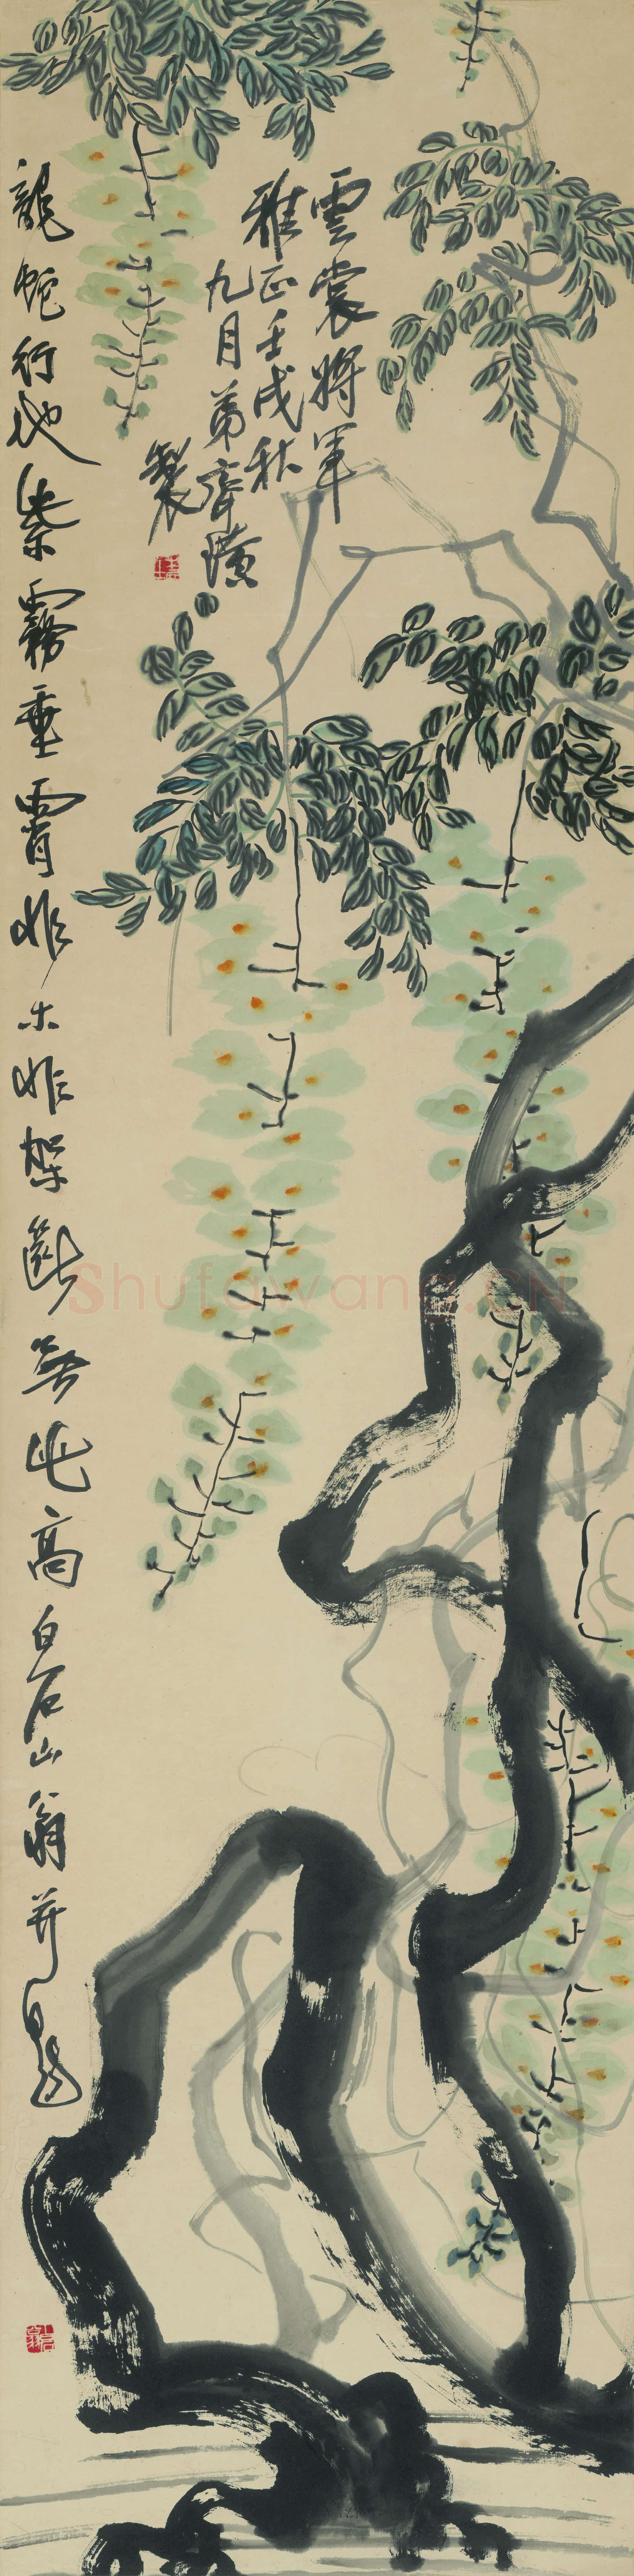 雲裳將軍
雅正壬戌秋
九月弟齊璜
製
龍蛇行地紫霧垂霄非木非架斷無此高白石山翁并題
Shufawang.CN